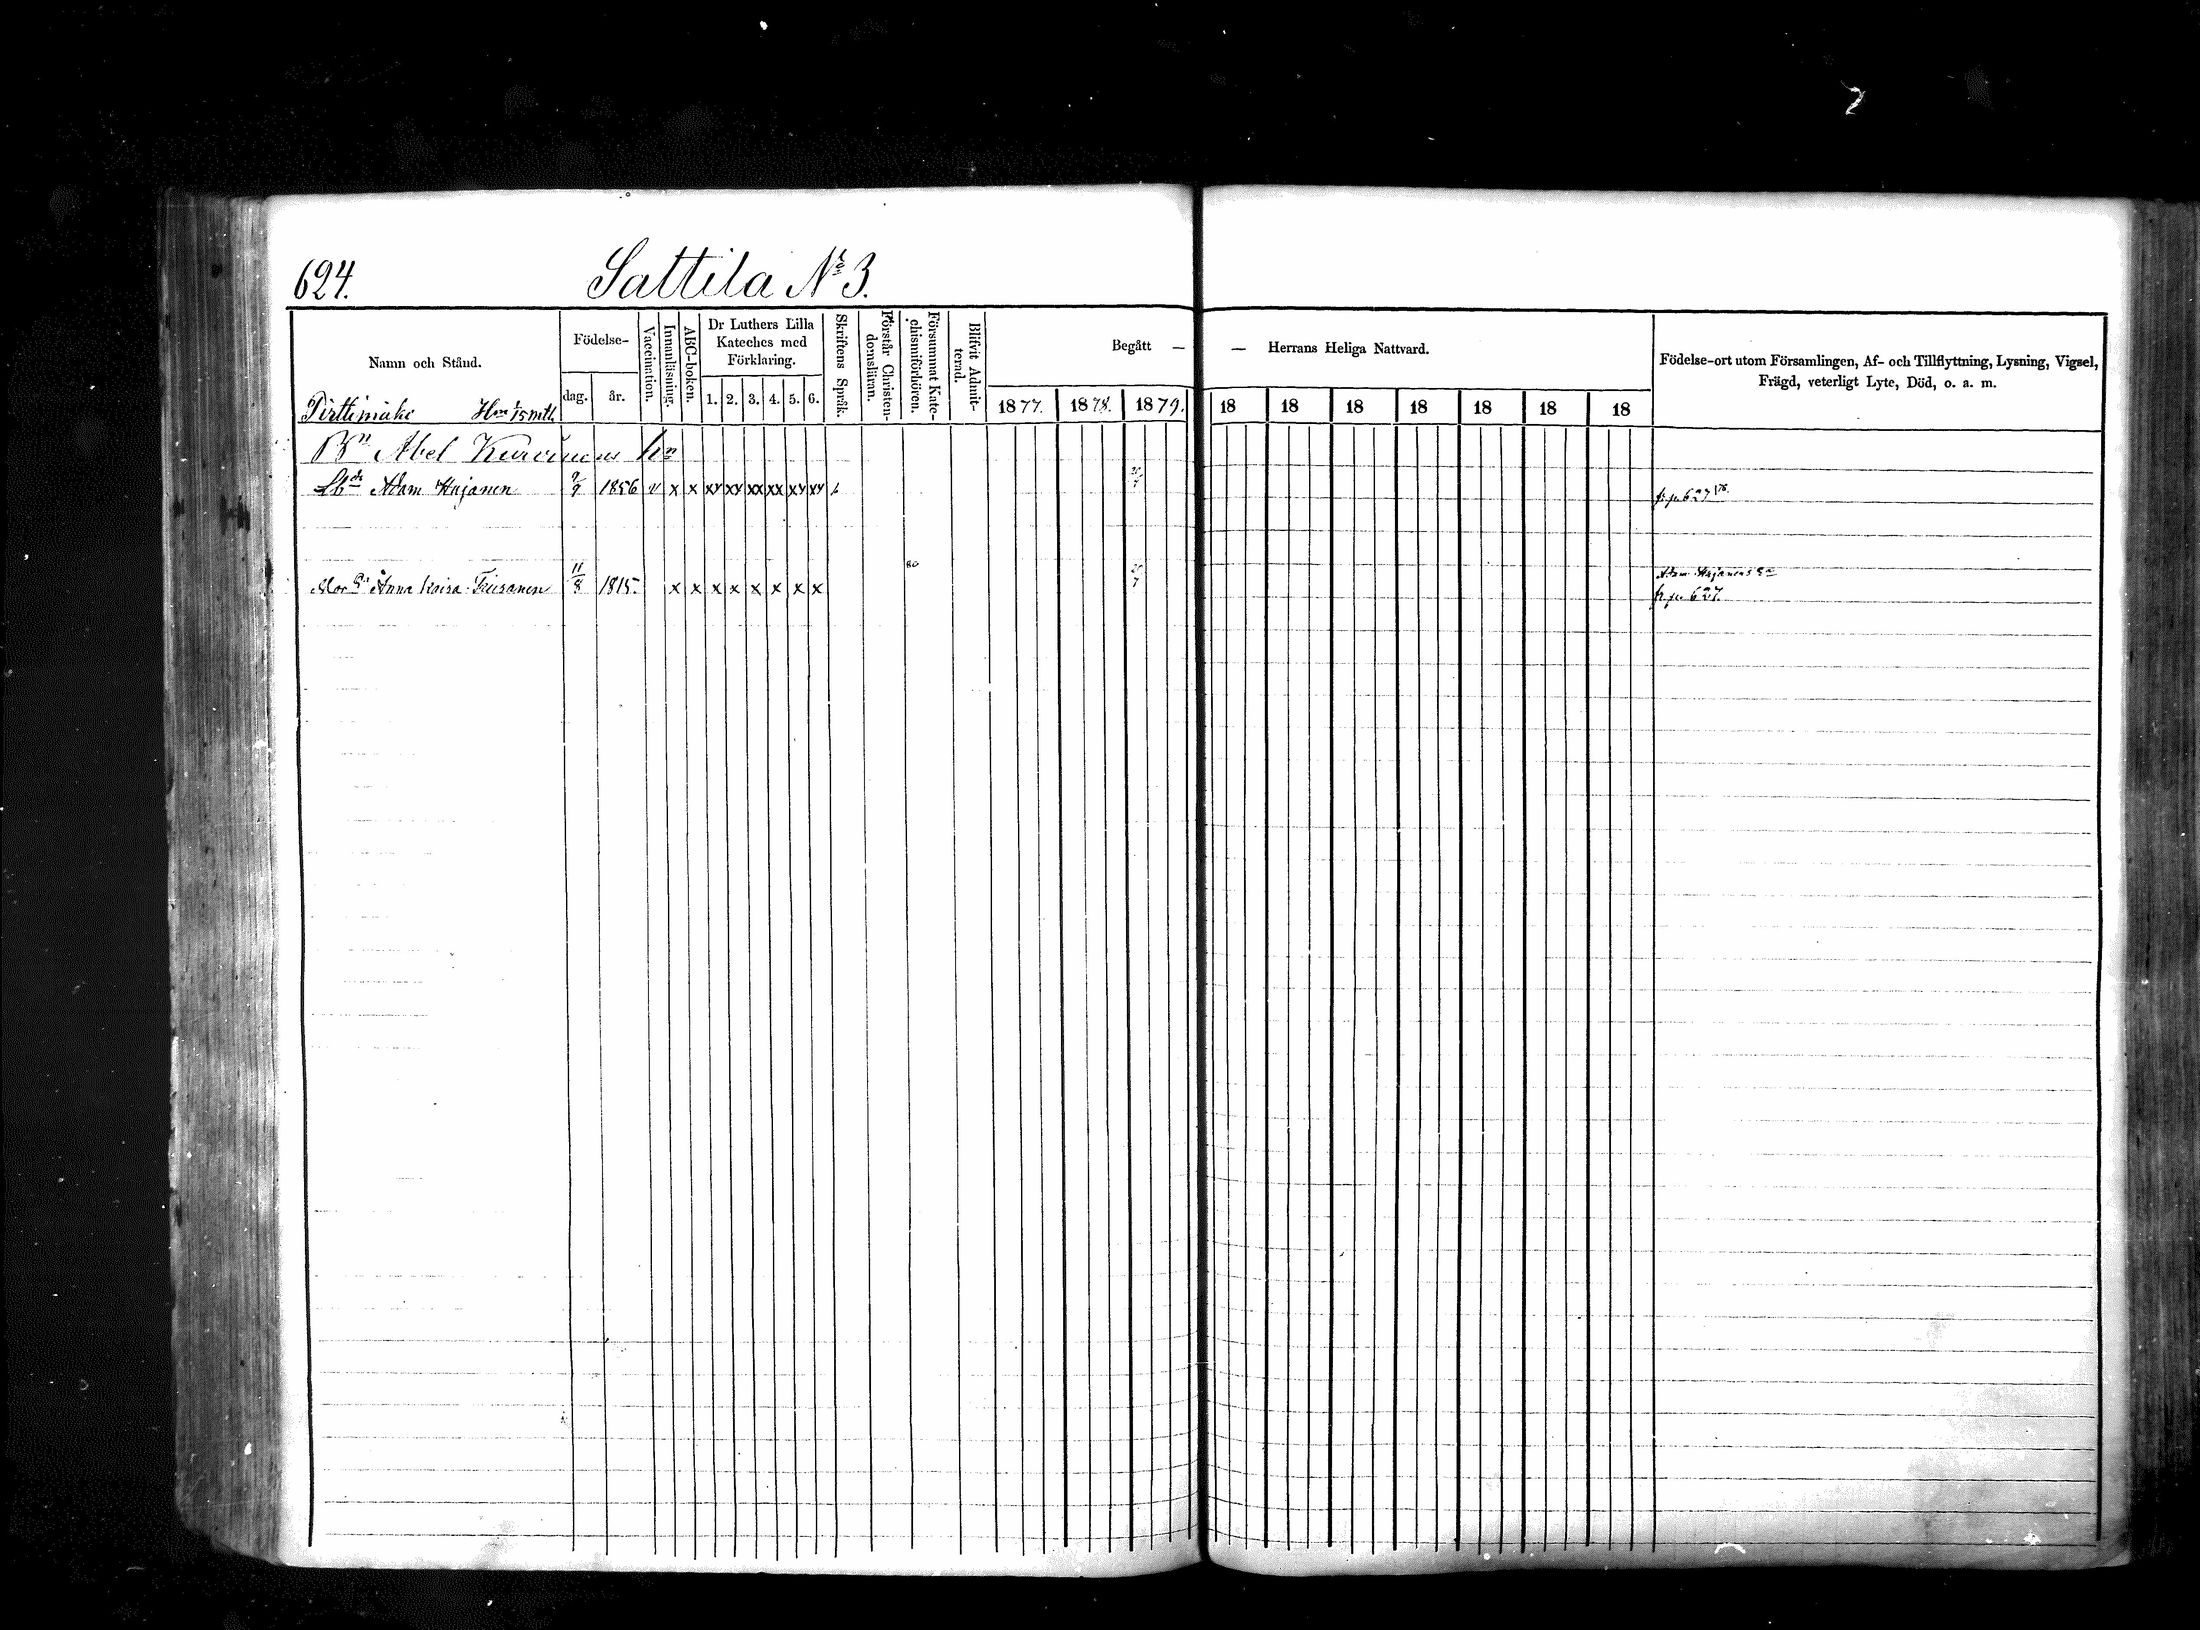 624. Sattila No 3.
Namn och Stånd. Födelse- dag. år. Vaccination. Innanläsning. ABC-boken. Dr Luthers Lilla Kateches med Förklaring. 1. 2. 3. 4. 5. 6. Skriftens Språk. Förstår Christendomsläran. Försummat Katechismiförhören. Blifvit Admitterad. Begått — 1877. 1878. 1879.
— Herrans Heliga Nattvard. 18 18 18 18 18 18 18 Födelse-ort utom Församlingen, Af- och Tillflyttning, Lysning, Vigsel, Frägd, veterligt Lyte, Död, o. a. m.
Pirttimäke Hm 1/15 mtl.
Bn Abel Kurvinens hn
Adam Hajanen 9/9 1856 v x x xy xy xx xx xy xy 20/7 fr. p. 627 /78.
80
Anna Kaisa 11/8 1815. x x x x x x x x 20/7 Adam Hajanens
fr. p. 627.